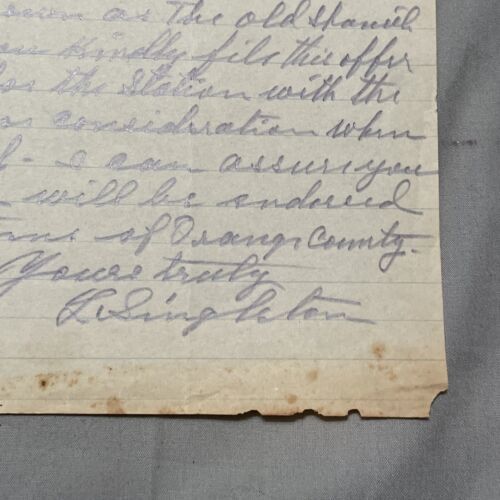 as The old Spanish
Kindly file this offer
the Station with the
consideration when
I can assure you
will be endorced
of Orange County.
Yours truly
L. Singleton